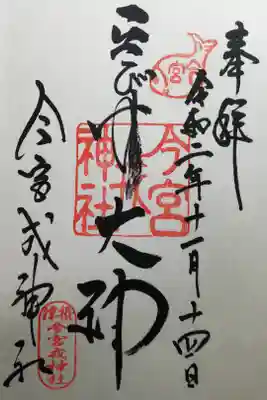 奉拝
令和二年十一月十四日
今宮
ゑびす大神
今宮戎神社
今宮戎神社
今宮戎神社